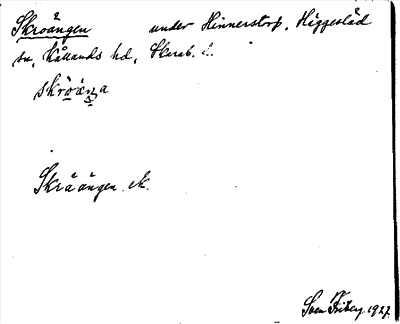 Skroängen under Hinnerstorp, Häggeslöd
sn, Kållands hd, Skarab. l.
skròäŋa
Skråängen ek.
Sven Friberg 1927.